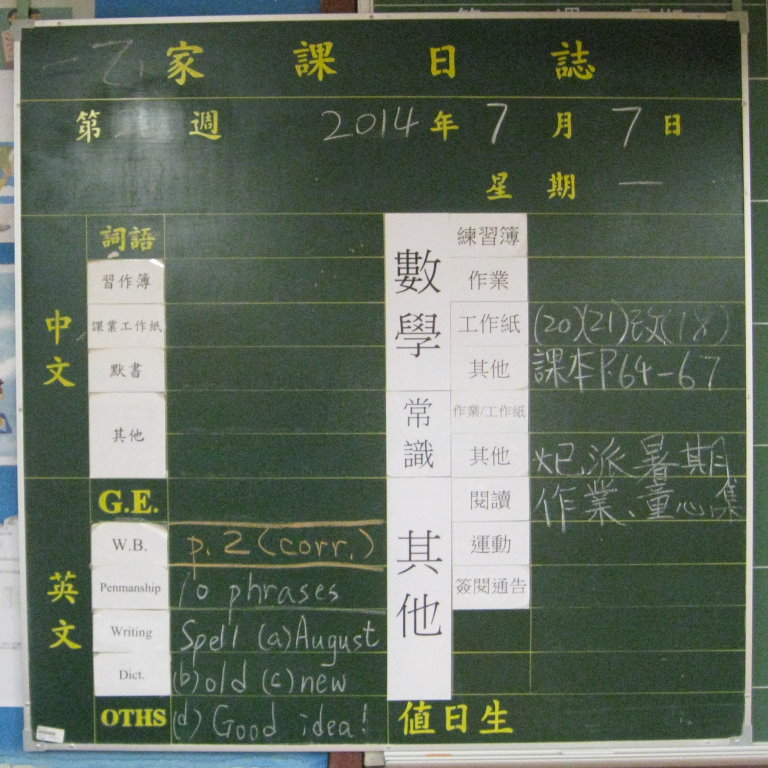 一乙 家課日誌
第 週 2014年7月7日
星期一
中文
詞語
習作簿
課業工作紙
默書
其他
英文
G.E.
W.B. p.2 (corr.)
Penmanship 10 phrases
Writing Spell (a) August
Dict. (b) old (c) new
OTHS (d) Good idea!
數學
練習簿
作業
工作紙 (20)(21)改(18)
其他 課本P.64-67
常識
作業/工作紙
其他
其他
閱讀
運動
簽閱通告
派暑期
作業、童心集
值日生